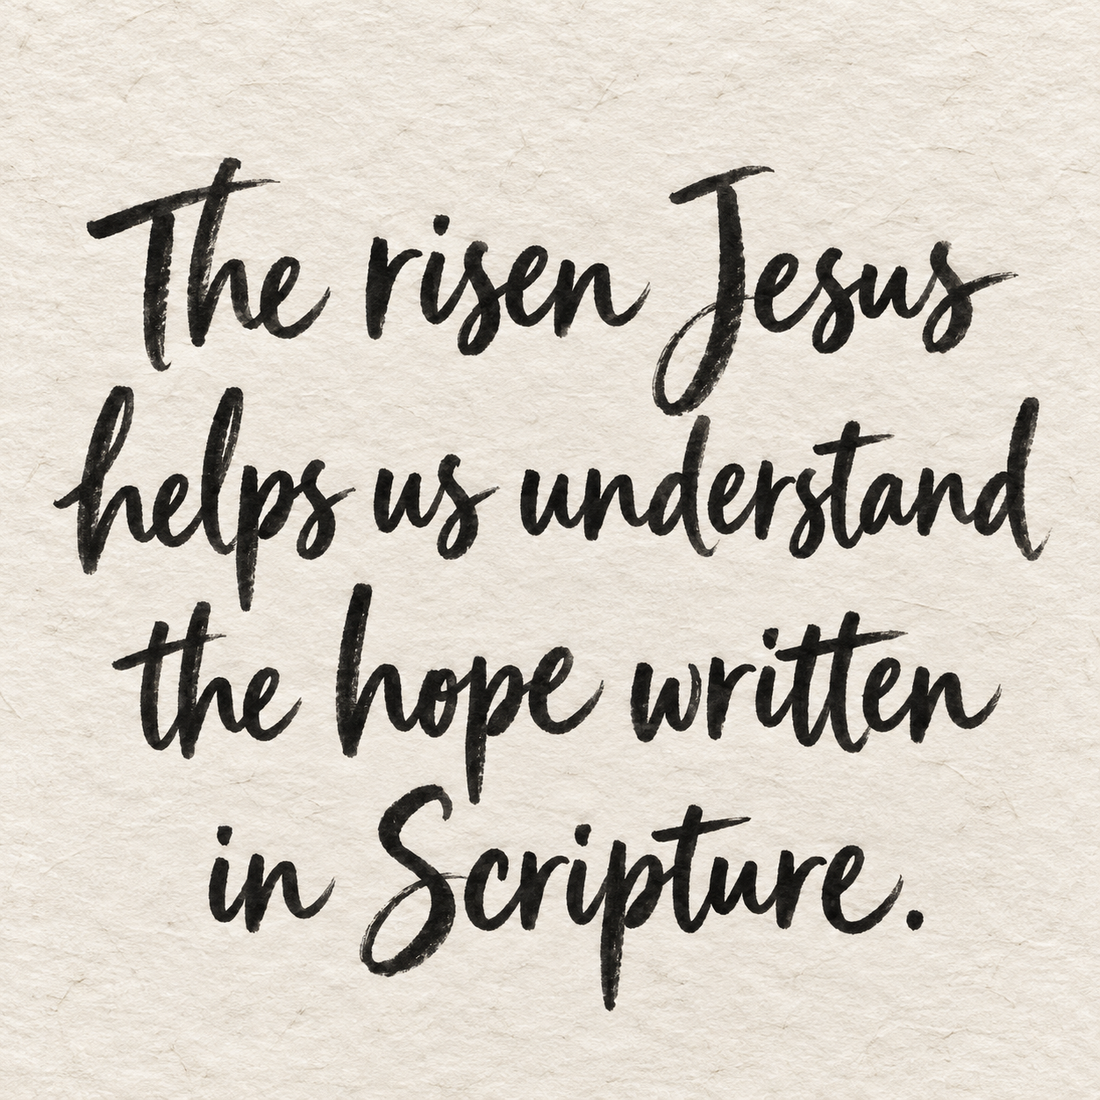 The risen Jesus
helps us understand
the hope written
in Scripture.